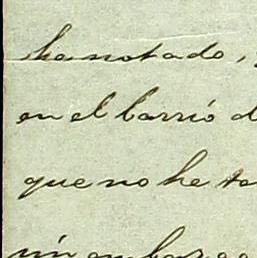 ha notado,
en el barrió d
que no he te
sin embargo